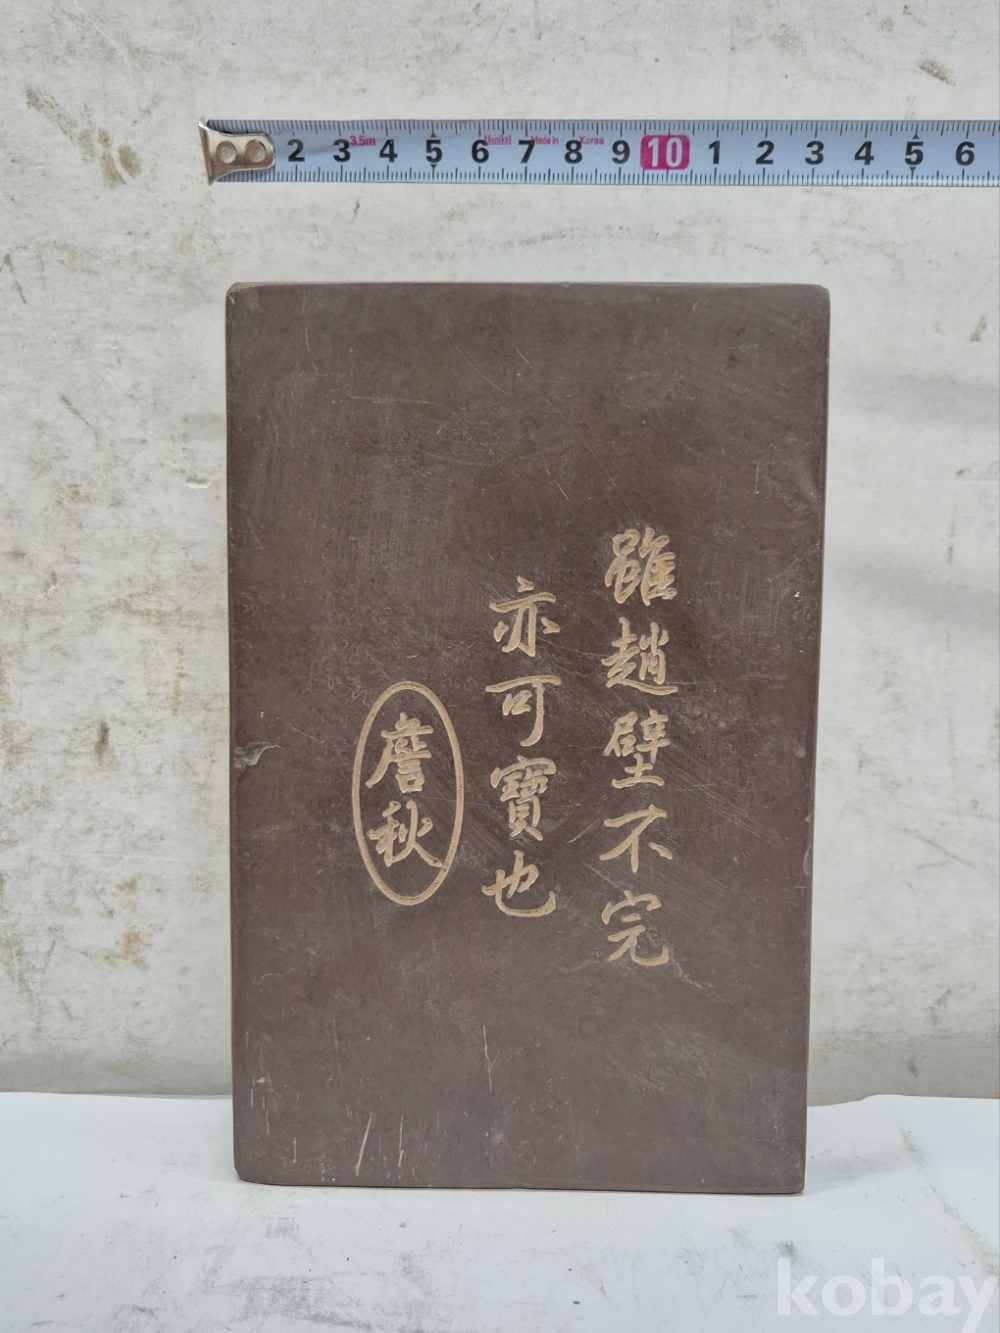 2 3 4 5 6 7 8 9 10 1 2 3 4 5 6
3.5m
Made in Korea
雖趙壁不完
亦可寶也
詹秋
kobay